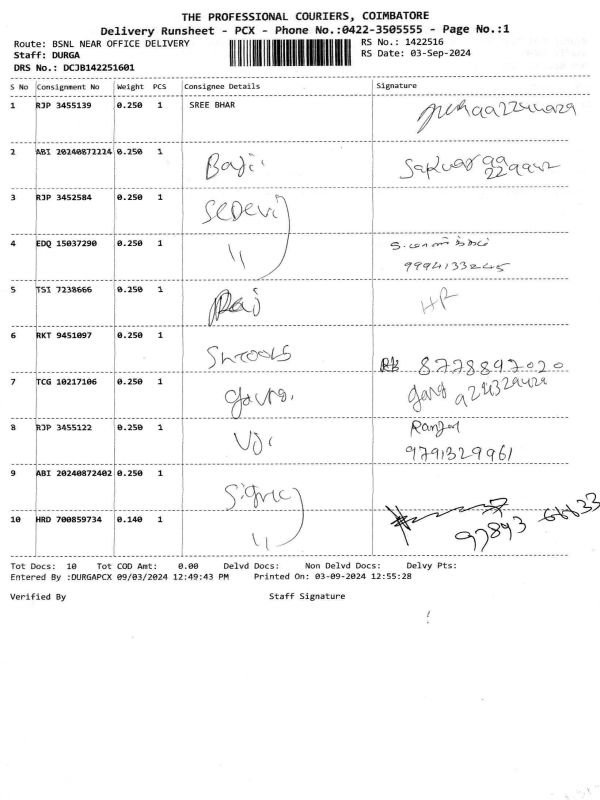 THE PROFESSIONAL COURIERS, COIMBATORE
Delivery Runsheet - PCX - Phone No.:0422-3505555 - Page No.:1
Route: BSNL NEAR OFFICE DELIVERY RS No.: 1422516
Staff: DURGA RS Date: 03-Sep-2024
DRS No.: DCJB142251601
S No Consignment No Weight PCS Consignee Details Signature
1 RJP 3455139 0.250 1 SREE BHAR
2 ABI 20240872224 0.250 1
3 RJP 3452584 0.250 1
4 EDQ 15037290 0.250 1
9994133245
5 TSI 7238666 0.250 1 Raj HR
6 RKT 9451097 0.250 1
8778897020
7 TCG 10217106 0.250 1
8 RJP 3455122 0.250 1
9791329961
9 ABI 20240872402 0.250 1
10 HRD 700859734 0.140 1
97893 66633
Tot Docs: 10 Tot COD Amt: 0.00 Delvd Docs: Non Delvd Docs: Delvy Pts:
Entered By :DURGAPCX 09/03/2024 12:49:43 PM Printed On: 03-09-2024 12:55:28
Verified By Staff Signature